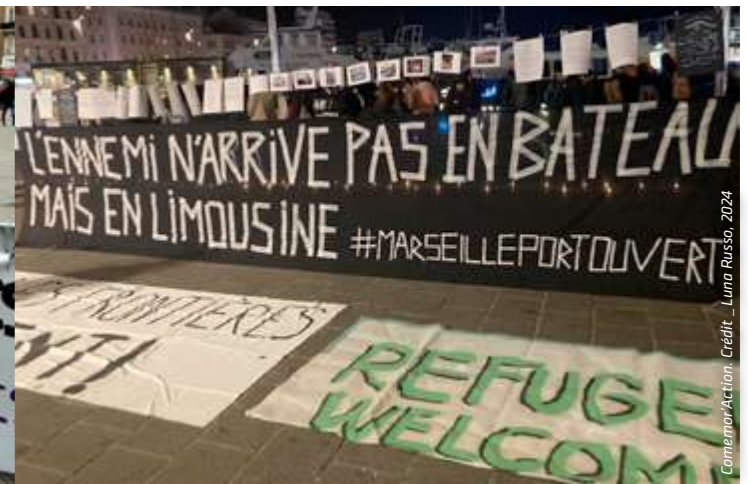 L'ENNEMi N'ARRiVE PAS EN BATEAU
MAiS EN LiMOUSiNE #MARSEILLEPORTOUVERT
FRONTIÈRES
REFUGE
WELCOM
Comemor'Action. Crédit _ Luna Russo, 2024